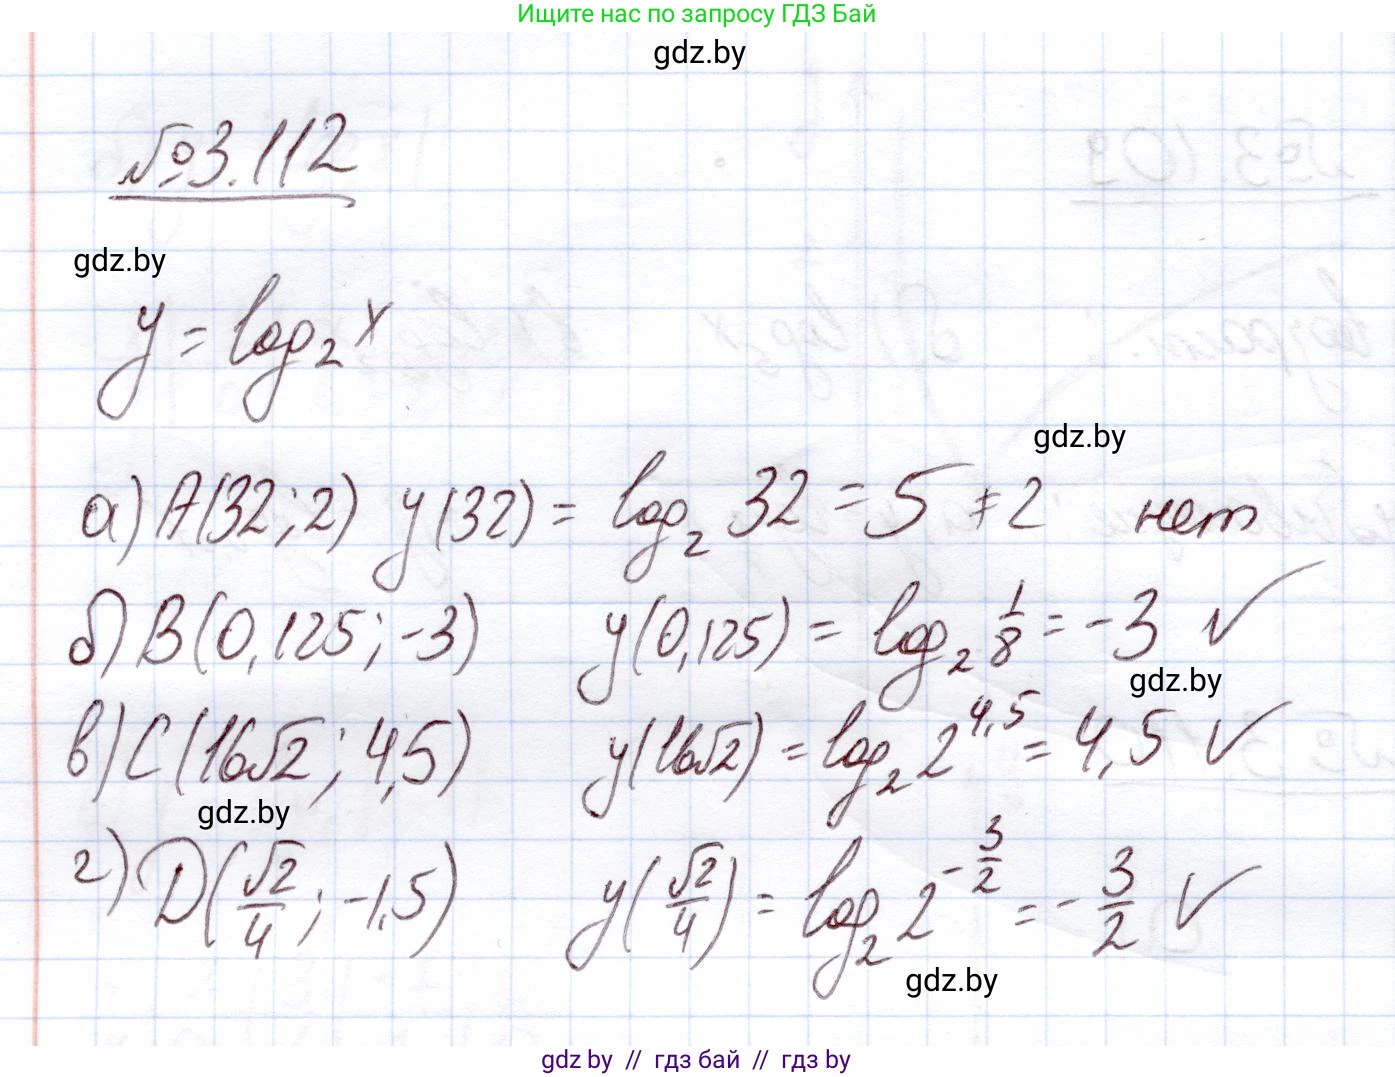 Ищите нас по запросу ГДЗ Бай
gdz.by
№3.112
gdz.by
y = log₂ x
gdz.by
а) A(32; 2) y(32) = log₂ 32 = 5 ≠ 2 нет
б) B(0,125; -3) y(0,125) = log₂ 1/8 = -3 ✓
gdz.by
в) C(16√2; 4,5) y(16√2) = log₂ 2^4,5 = 4,5 ✓
gdz.by
г) D(√2/4; -1,5) y(√2/4) = log₂ 2^(-3/2) = -3/2 ✓
gdz.by
gdz by // гдз бай // гдз by